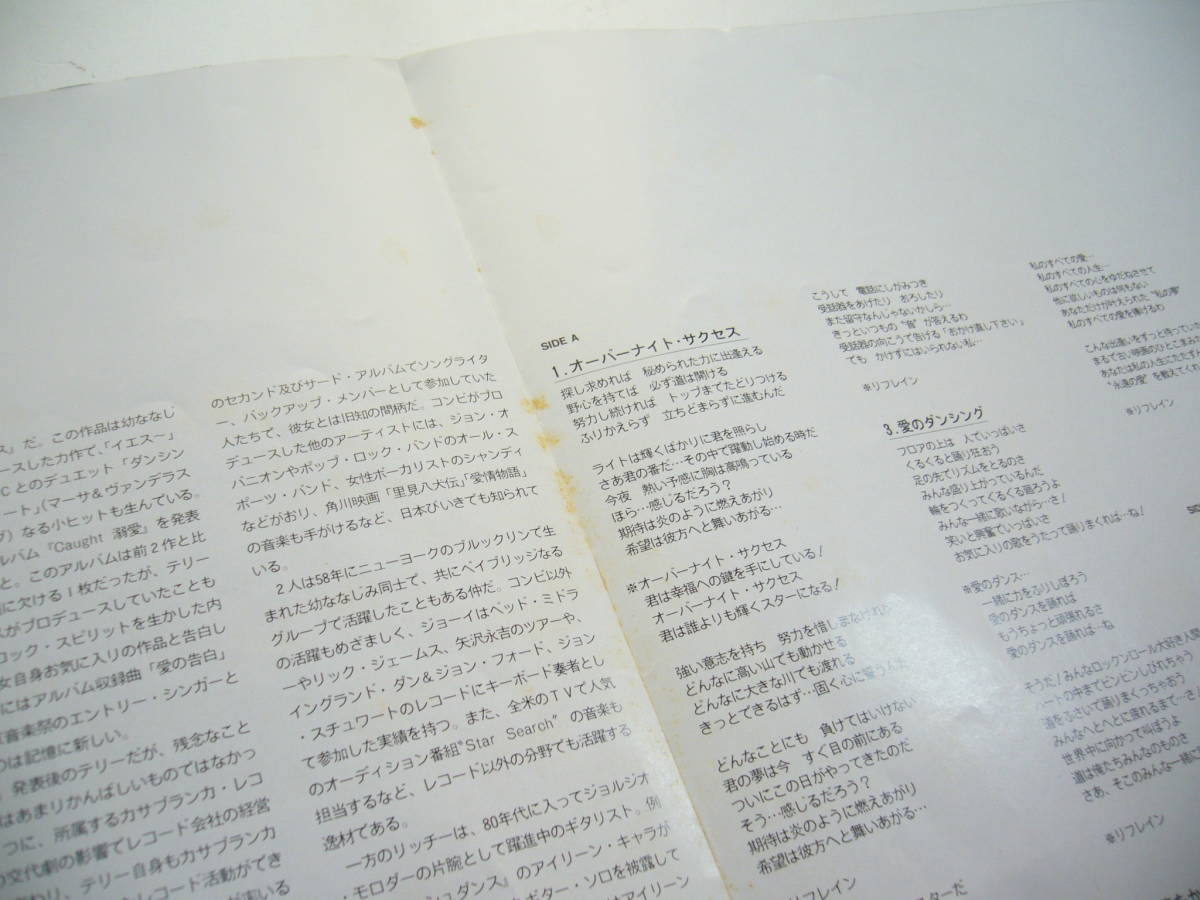 ス」だ。この作品は幼ななじ
ースした力作で、「イエスー」
Cとのデュエット「ダンシン
ート」(マーサ&ヴァンデラス
グ)なる小ヒットも生んでいる。
ルバム『Caught 溺愛』を発表
と。このアルバムは前2作と比
に欠ける1枚だったが、テリー
スがプロデュースしていたことも
ロック・スピリットを生かした内
女自身お気に入りの作品と告白し
にはアルバム収録曲「愛の告白」
音楽祭のエントリー・シンガーと
のは記憶に新しい。
発表後のテリーだが、残念なこと
はあまりかんばしいものではなかっ
つに、所属するカサブランカ・レコ
の交代劇の影響でレコード会社の経営
わり、テリー自身もカサブランカ
レコード活動ができ
のセカンド及びサード・アルバムでソングライタ
ー、バックアップ・メンバーとして参加していた
人たちで、彼女とは旧知の間柄だ。コンビがプロ
デュースした他のアーティストには、ジョン・オ
バニオンやポップ・ロック・バンドのオール・ス
ポーツ・バンド、女性ボーカリストのシャンディ
などがおり、角川映画「里見八犬伝」「愛情物語」
の音楽も手がけるなど、日本びいきでも知られて
いる。
2人は58年にニューヨークのブルックリンで生
まれた幼ななじみ同士で、共にベイブリッジなる
グループで活躍したこともある仲だ。コンビ以外
の活躍もめざましく、ジョーイはベッド・ミドラ
ーやリック・ジェームス、矢沢永吉のツアーや、
イングランド・ダン&ジョン・フォード、ジョン
・スチュワートのレコードにキーボード奏者とし
て参加した実績を持つ。また、全米のTVで人気
のオーディション番組"Star Search"の音楽も
担当するなど、レコード以外の分野でも活躍する
逸材である。
一方のリッチーは、80年代に入ってジョルジオ
・モロダーの片腕として躍進中のギタリスト。例
シュダンス』のアイリーン・キャラが
ギター・ソロを披露して
はアイリーン
SIDE A
1.オーバーナイト・サクセス
探し求めれば 秘められた力に出逢える
野心を持てば 必ず道は開ける
努力し続ければ トップまでたどりつける
ふりかえらず 立ちどまらずに進むんだ
ライトは輝くばかりに君を照らし
さあ君の番だ…その中で躍動し始める時だ
今夜 熱い予感に胸は高鳴っている
ほら…感じるだろう?
期待は炎のように燃えあがり
希望は彼方へと舞いあがる…
※オーバーナイト・サクセス
君は幸福への鍵を手にしている!
オーバーナイト・サクセス
君は誰よりも輝くスターになる!
強い意志を持ち 努力を惜しまなければ
どんなに高い山でも動かせる
どんなに大きな川でも渡れる
きっとできるはず…固く心に誓うんだ
どんなことにも 負けてはいけない
君の夢は今 すぐ目の前にある
ついにこの日がやってきたのだ
そう…感じるだろう?
期待は炎のように燃えあがり
希望は彼方へと舞いあがる…
※リフレイン
スターだ
こうして 電話にしがみつき
受話器をあげたり おろしたり
また留守なんじゃないかしら…
きっといつもの "音" が答えるわ
受話器の向こうで告げる「おかけ直し下さい」
でも かけずにはいられない私…
※リフレイン
3.愛のダンシング
フロアの上は 人でいっぱいさ
くるくると踊り狂おう
足の先でリズムをとるのさ
みんな盛り上がっているんだ
輪をつくってくるくる廻ろうよ
みんな一緒に歌いながら…さ!
笑いと興奮でいっぱいさ
お気に入りの歌をうたって踊りまくれば…ね!
※愛のダンス…
一緒に力をふりしぼろう
愛のダンスを踊れば
もうちょっと頑張れるさ
愛のダンスを踊れば…ね
そうだ!みんなロックンロール大好き人
ハートの中までビンビンしびれちゃう
道をふさいで踊りまくっちゃおう
みんなへとへとに疲れるまで…さ
世界中に向かって叫ぼうよ
道は俺たちみんなのものさ
さあ、そこのみんな一緒に
※リフレイン
私のすべての愛…
私のすべての人生…
私のすべての心をゆだねさせて
他に欲しいものは何もない
あなただけが叶えられた "私の夢"
私のすべての愛を捧げるわ
こんな出逢いをずっと待ってい
まるで古い映画のひとこまみ
あなたは私の人生にただ
"永遠の愛" を教えてくれ
※リフレイン